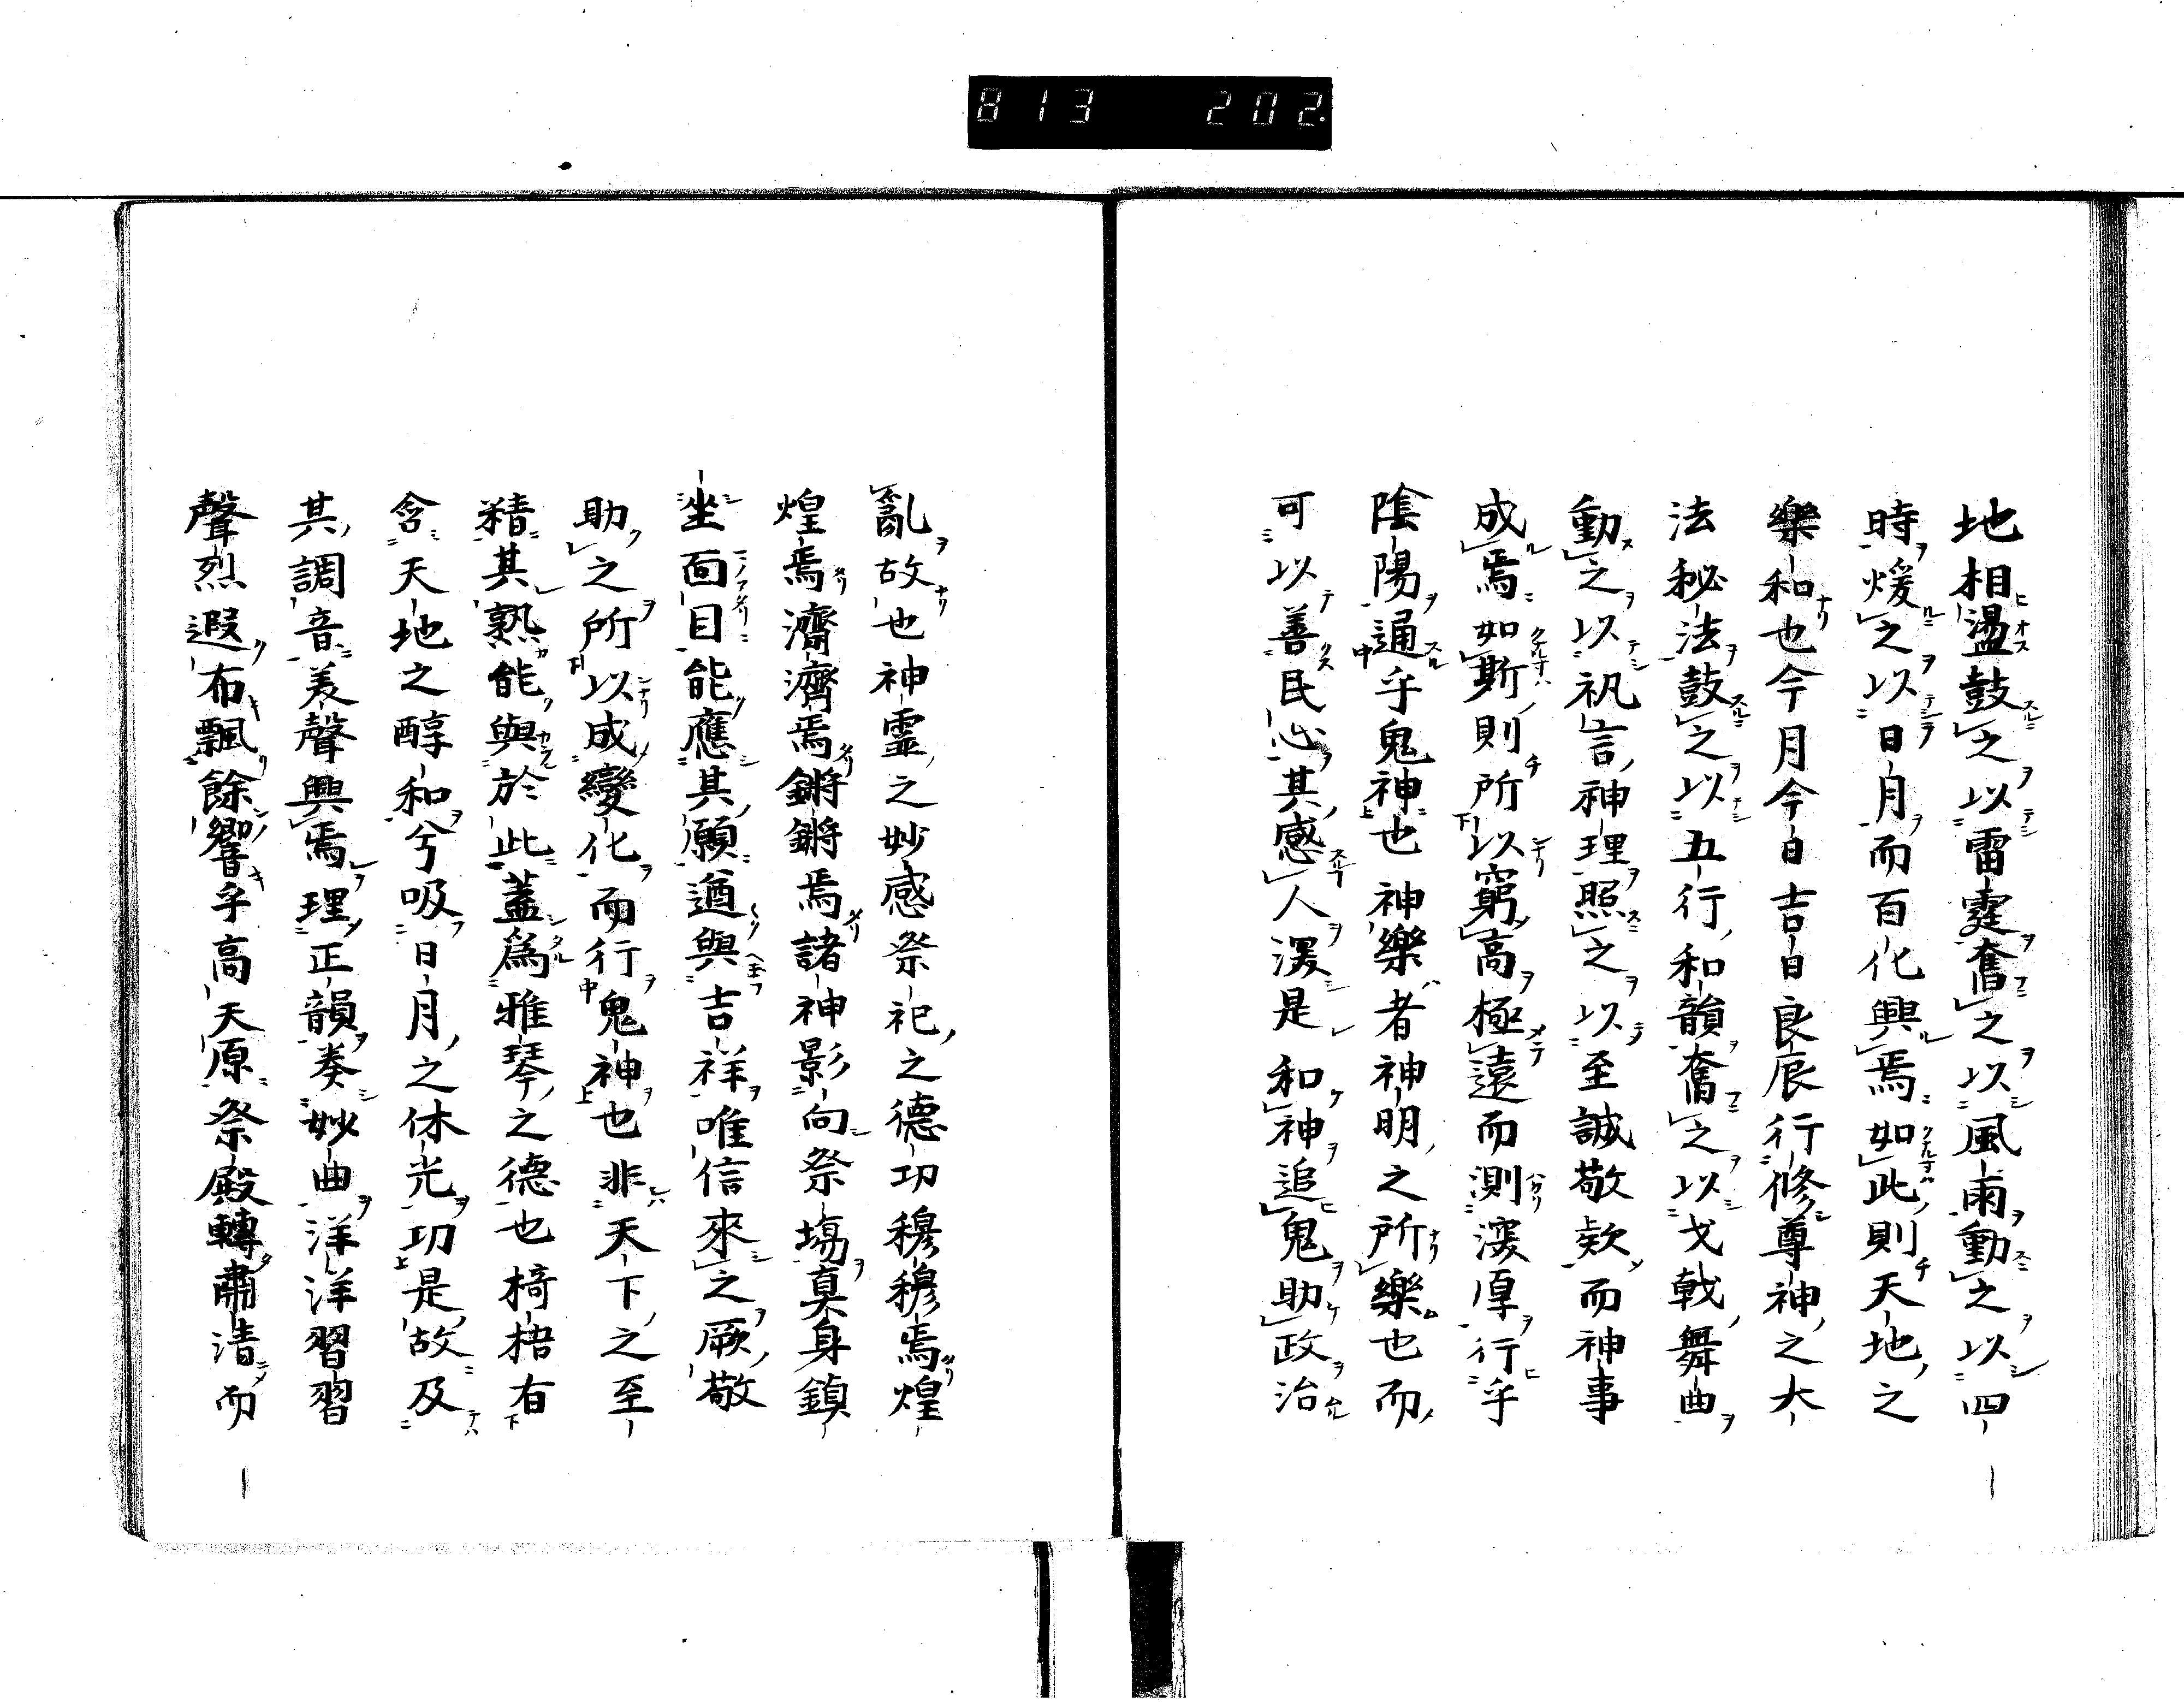 813 202
地相盪鼓之以雷霆奮之以風雨動之以四
時煖之以日月而百化興焉如此則天地之
樂和也今月今日吉日良辰行修尊神之大
法秘法鼓之以五行和韻奮之以戈戟舞曲
動之以祝言神理照之以至誠敬欵而神事
成焉如斯則所以窮高極遠而測深厚行乎
陰陽通乎鬼神也神樂者神明之所樂也而
可以善民心其感人深是和神追鬼助政治
亂故也神霊之妙感祭祀之德功穆穆焉煌
煌焉濟濟焉鏘鏘焉諸神影向祭場真身鎮
坐面目能應其願遒與吉祥唯信來之厥敬
助之所以成變化而行鬼神也非天下之至
精其孰能與於此蓋爲雅琴之德也椅梧有
含天地之醇和兮吸日月之休光功是故及
其調音美聲興焉理正韻奏妙曲洋洋習習
聲烈遐布飄餘響乎高天原祭殿轉肅清而